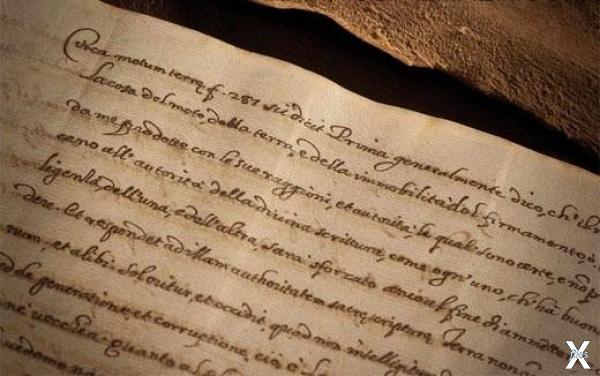 Circa motum terrę f. 287 sic dicit Prima generalmente dico, ch'il
la cosa del moto della terra, e della immobilità del firmamento, ò
da me prodotte con le sue raggioni, et autorità, le quali sono certe, e nõ p
cano all'autorità della divina scrittura, come ogn'uno, ch'ha buona
ligenza dell'una, e dell'altra sarà sforzato ancora al fine di amettere
dere. Et respondet ad illam authoritatem sacrę scripturę Terra
rum, et alibi. Sol oritur, et occidit, quod non intelligitur
de generatione, et corruptione, cioè
vecchia: quanto al